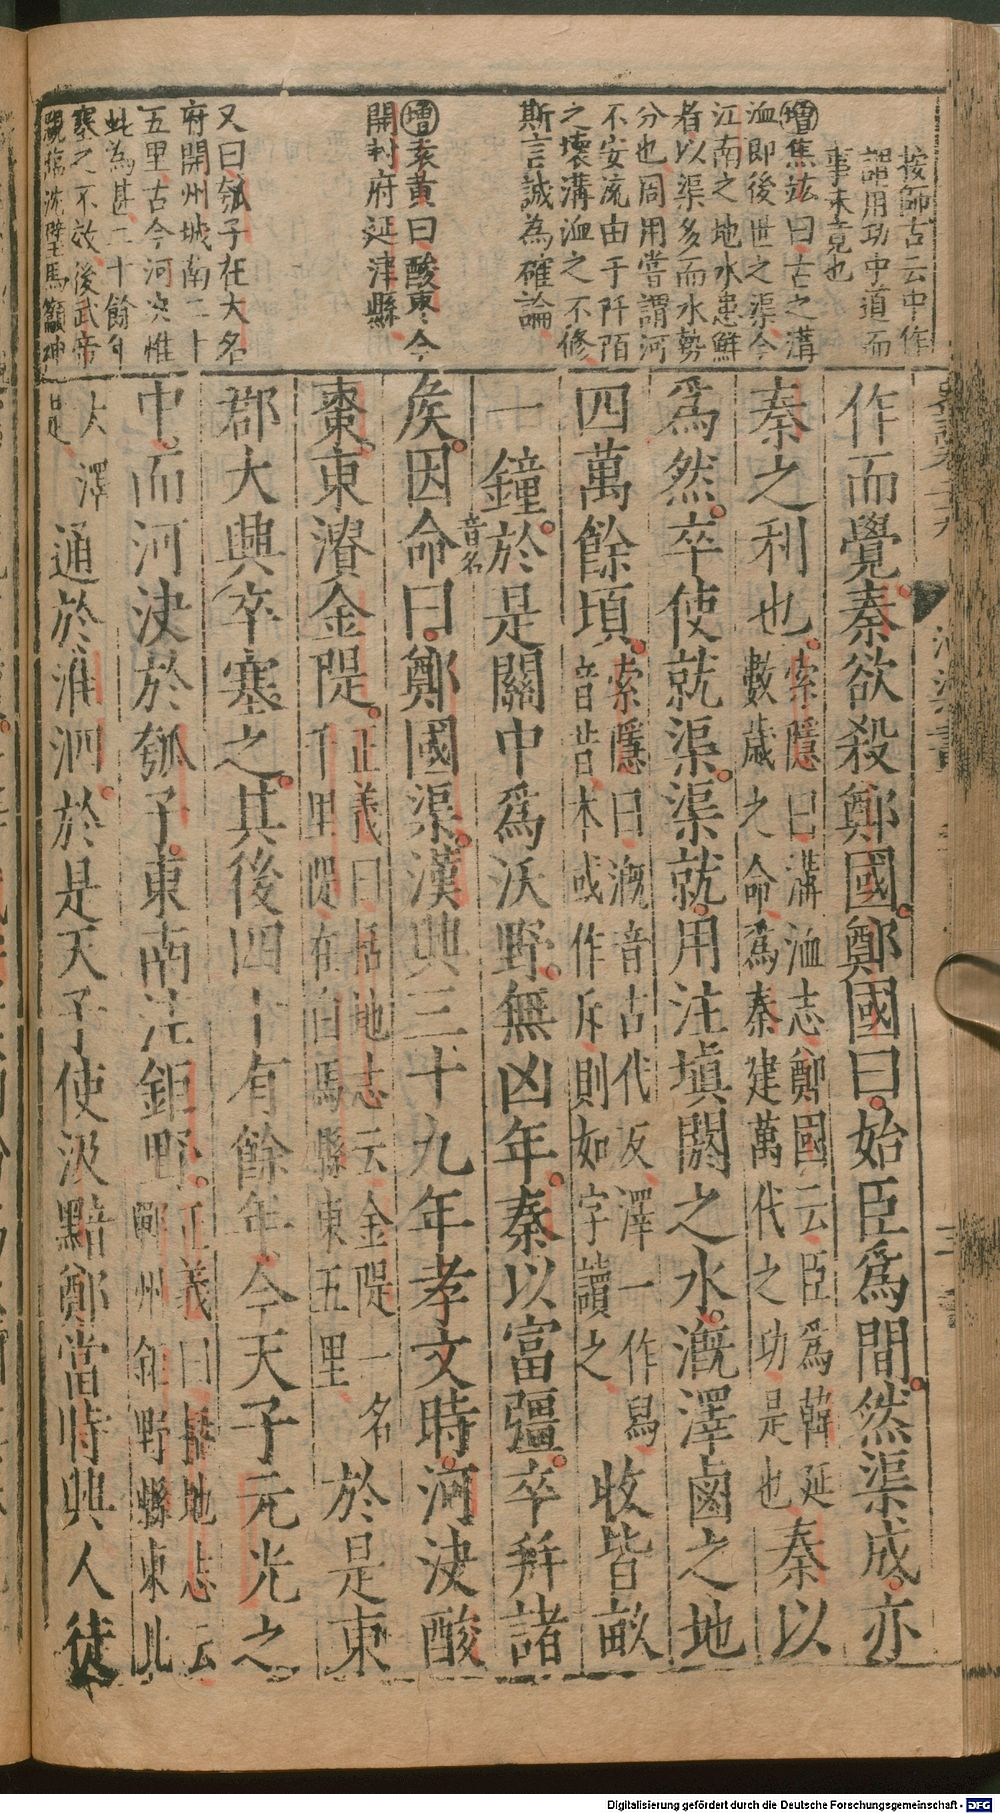 按師古云中作
謂用功中道而
事未竟也
增焦竑曰古之溝
洫即後世之渠今
江南之地水患鮮
者以渠多而水勢
分也周用嘗謂河
不安流由于阡陌
之壞溝洫之不修
斯言誠為確論
增袁黃曰酸棗今
開封府延津縣
又曰瓠子在大名
府開州城南二十
五里古今河決惟
此為甚二十餘年
塞之不效後武帝
親臨沈璧馬籲神
作而覺秦欲殺鄭國鄭國曰始臣爲間然渠成亦
秦之利也索隱曰溝洫志鄭國云臣爲韓延數歲之命爲秦建萬代之功是也秦以
爲然卒使就渠渠就用注塡閼之水漑澤鹵之地
四萬餘頃索隱曰漑音古代反澤一作舄音昔本或作斥則如字讀之收皆畝
一鐘音名於是關中爲沃野無凶年秦以富彊卒幷諸
矦因命曰鄭國渠漢興三十九年孝文時河決酸
棗東潰金隄正義曰括地志云金隄一名千里隄在白馬縣東五里於是東
郡大興卒塞之其後四十有餘年今天子元光之
中而河決於瓠子東南注鉅野正義曰括地志云鄆州鉅野縣東北
大澤是通於淮泗於是天子使汲黯鄭當時興人徒
Digitalisierung gefördert durch die Deutsche Forschungsgemeinschaft - DFG